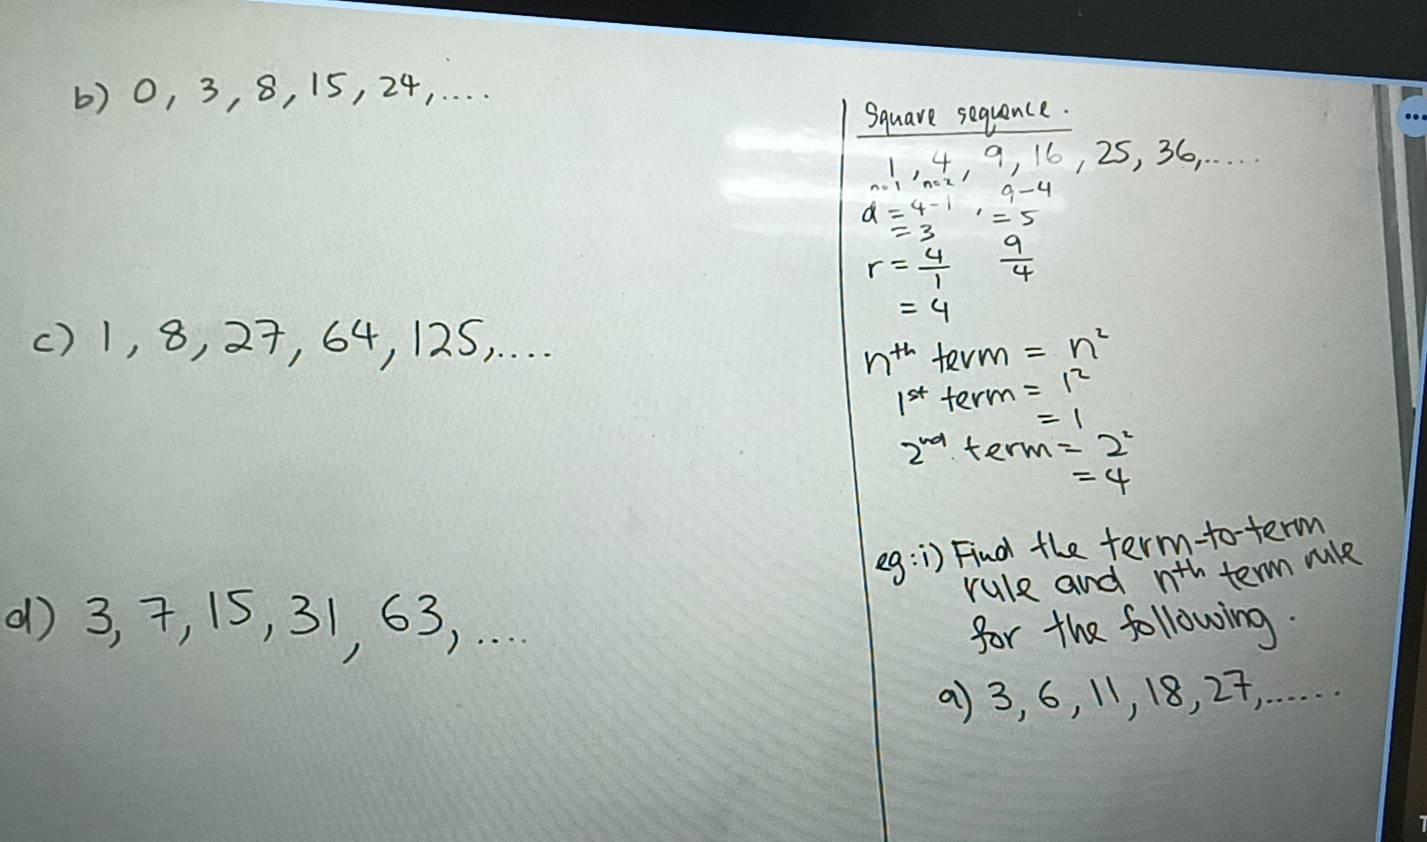 b) 0, 3, 8, 15, 24, ....
c) 1, 8, 27, 64, 125, ....
d) 3, 7, 15, 31, 63, ....
Square sequence.
1, 4, 9, 16, 25, 36, .....
n=1 n=2
d = 4-1 , 9-4
= 3 = 5
r = 4/1 9/4
= 4
nth term = n²
1st term = 1²
= 1
2nd. term = 2²
= 4
eg: i) Find the term-to-term
rule and nth term rule
for the following.
a) 3, 6, 11, 18, 27, ......